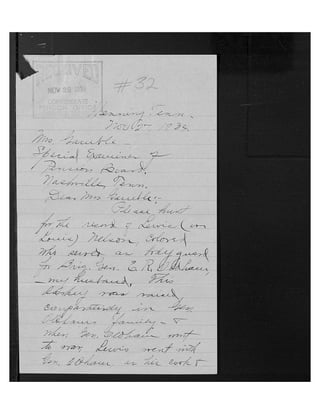 RECEIVED
NOV 29 193
CONFEDERATE
PENSION OFFICE
#32
Henning Tenn.
Nov 193
Mrs. Gamble -
Special Examiner of
Pension Board,
Nashville, Tenn.
Dear Mrs Gamble:-
Please hunt
for the record of Lewis (or
Louis) Nelson, colored
who served as body guard
for Brig. Gen. E. R. Oldham,
my husband. This
darkey was raised
comparatively in Gen.
Oldham's family - &
when Gen. Oldham went
to war, Lewis went with
Gen. Oldham as his cook &